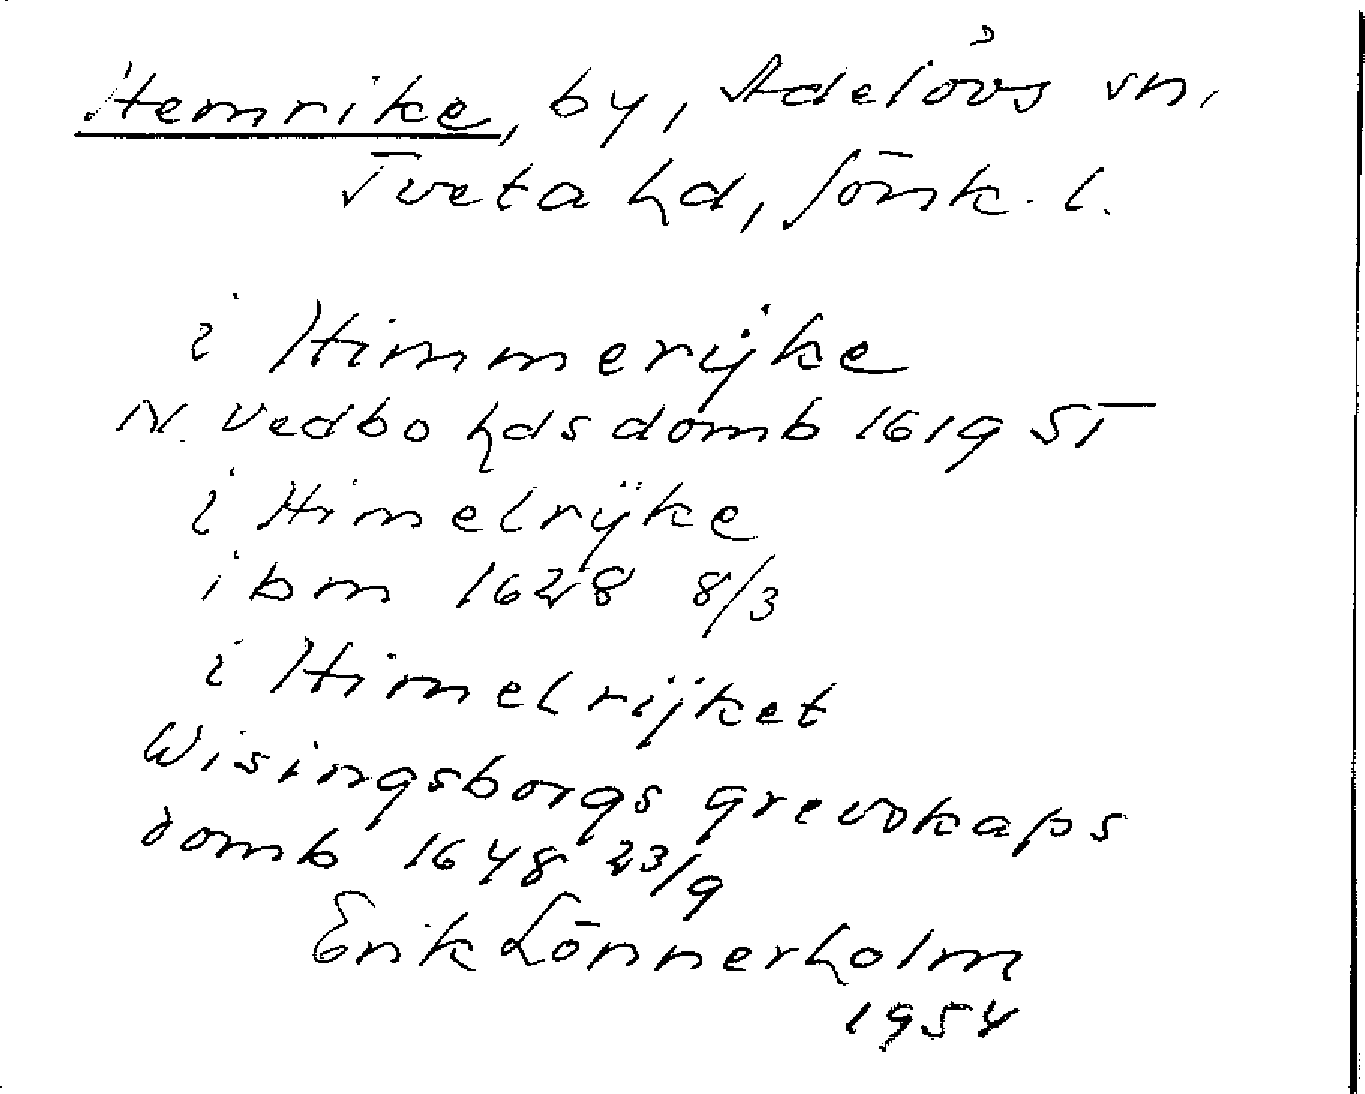 Hemrike, by, Adelövs sn,
Tveta hd, Jönk. l.
i Himmerijke
N. Vedbo hds domb 1619 ST
i Himelrÿke
ibm 1628 8/3
i Himelrijket
Wisingsborgs grevskaps
domb 1648 23/9
Erik Lönnerholm
1954